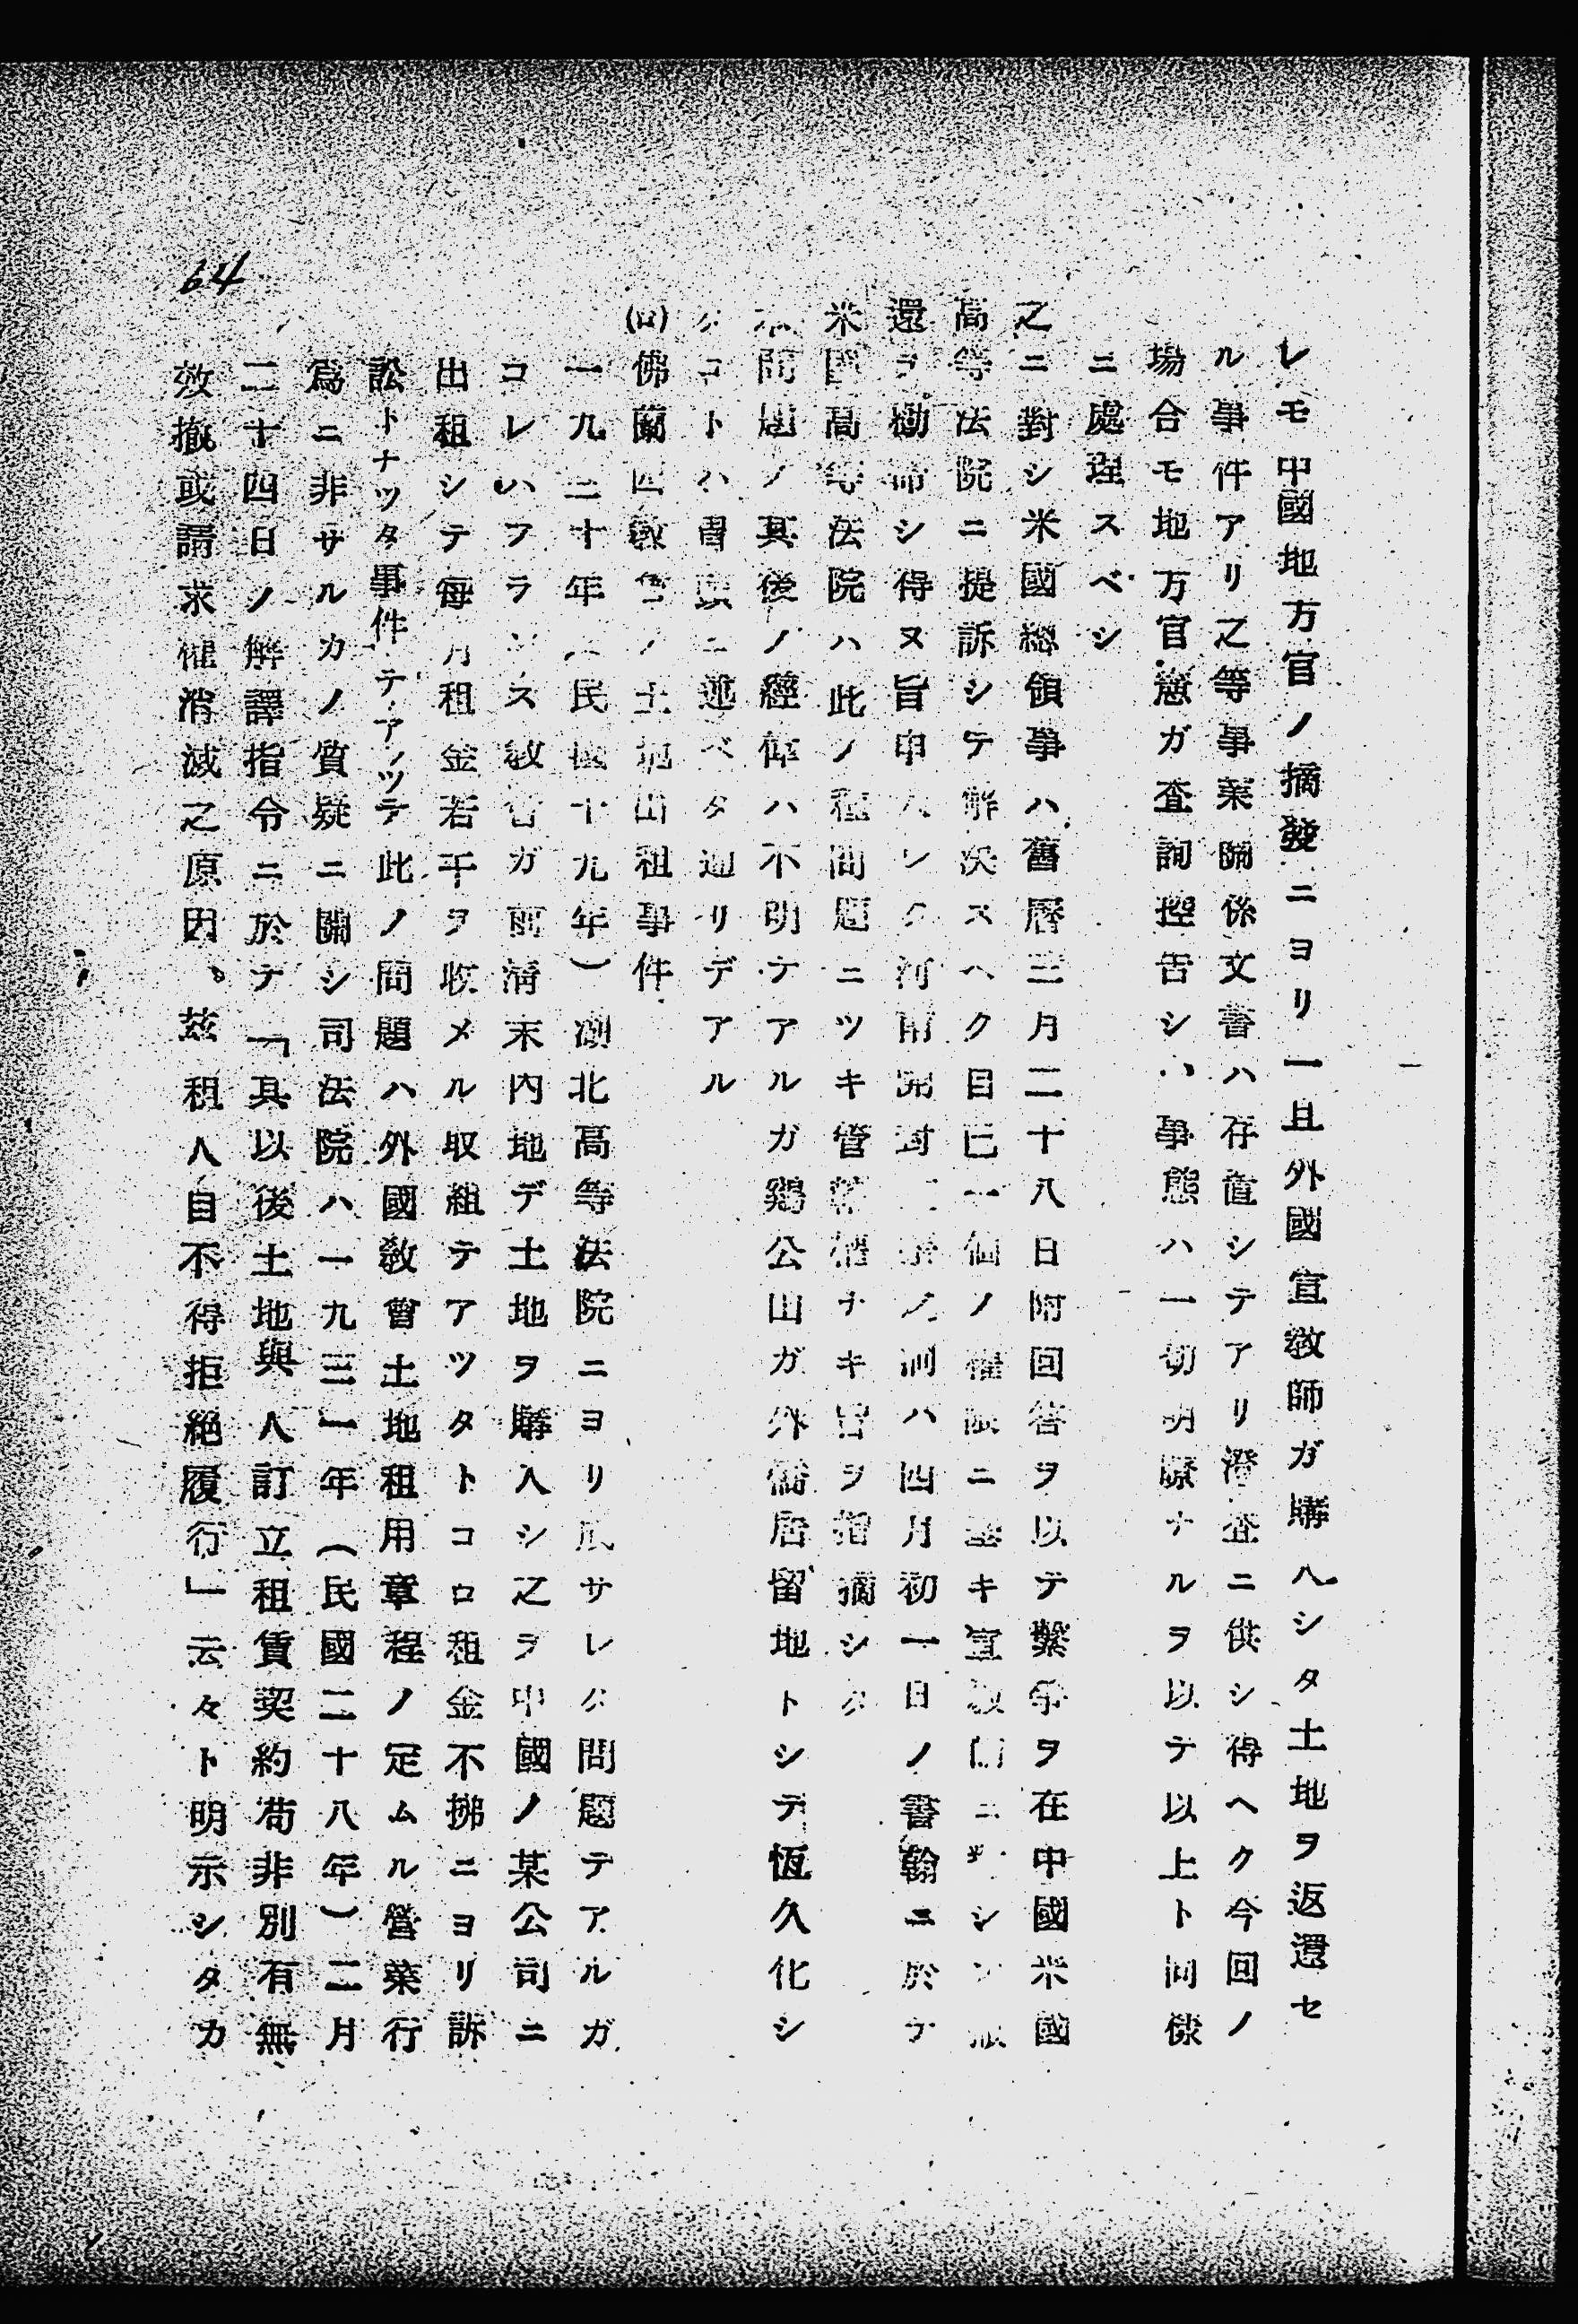 レモ中國地方官ノ摘發ニヨリ一旦外國宣敎師ガ購入シタ土地ヲ返還セ
ル事件アリ之等事業關係文書ハ存置シテアリ澄査ニ供シ得ヘク今回ノ
場合モ地方官憲ガ査詢控告シハ事態ハ一切明瞭ナルヲ以テ以上ト同樣
ニ處理スベシ
之ニ對シ米國總領事ハ舊曆三月二十八日附回答ヲ以テ繫爭ヲ在中國米國
高等法院ニ提訴シテ解決スヘク目下一個ノ權限ニ基キ宣敎師ニ對シ
還ヲ勸命シ得ヌ旨申 河南開封 ハ四月初一日ノ書翰ニ於テ
米國高等法院ハ此ノ種問題ニツキ管轄權ナキ旨ヲ指摘シタ
問題ノ其後ノ經緯ハ不明テアルガ鷄公山ガ外僑居留地トシテ恆久化シ
タコトハ冒頭ニ述ベタ通リデアル
(ロ)佛蘭西敎會ノ土地出租事件
一九三十年(民國十九年)湖北高等法院ニヨリ サレタ問題テアルガ
コレハフランス敎會ガ前淸末內地デ土地ヲ購入シ之ヲ中國ノ某公司ニ
出租シテ每月租金若干ヲ收メル取組テアツタトコロ租金不拂ニヨリ訴
訟トナツタ事件テアツテ此ノ問題ハ外國敎會土地租用章程ノ定ムル營業行
爲ニ非サルカノ質疑ニ關シ司法院ハ一九三一年(民國二十八年)二月
二十四日ノ解譯指令ニ於テ「其以後土地與人訂立租賃契約苟非別有無
效撤或請求權消滅之原因、茲租人自不得拒絕履行」云々ト明示シタカ
64